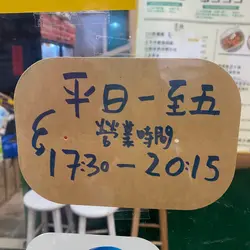 平日一至五
營業時間
17:30-20:15